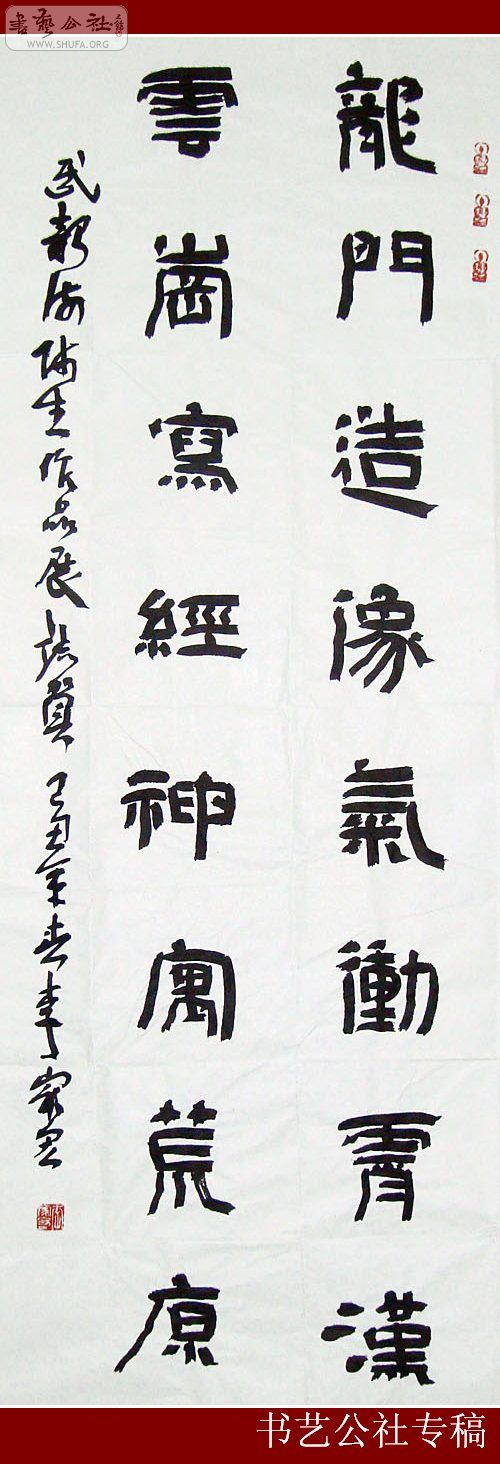 書藝公社
WWW.SHUFA.ORG
龍門造像氣衝霄漢
雲崗寫經神寓荒原
师生作品展 誌賀 己丑年春李
书艺公社专稿